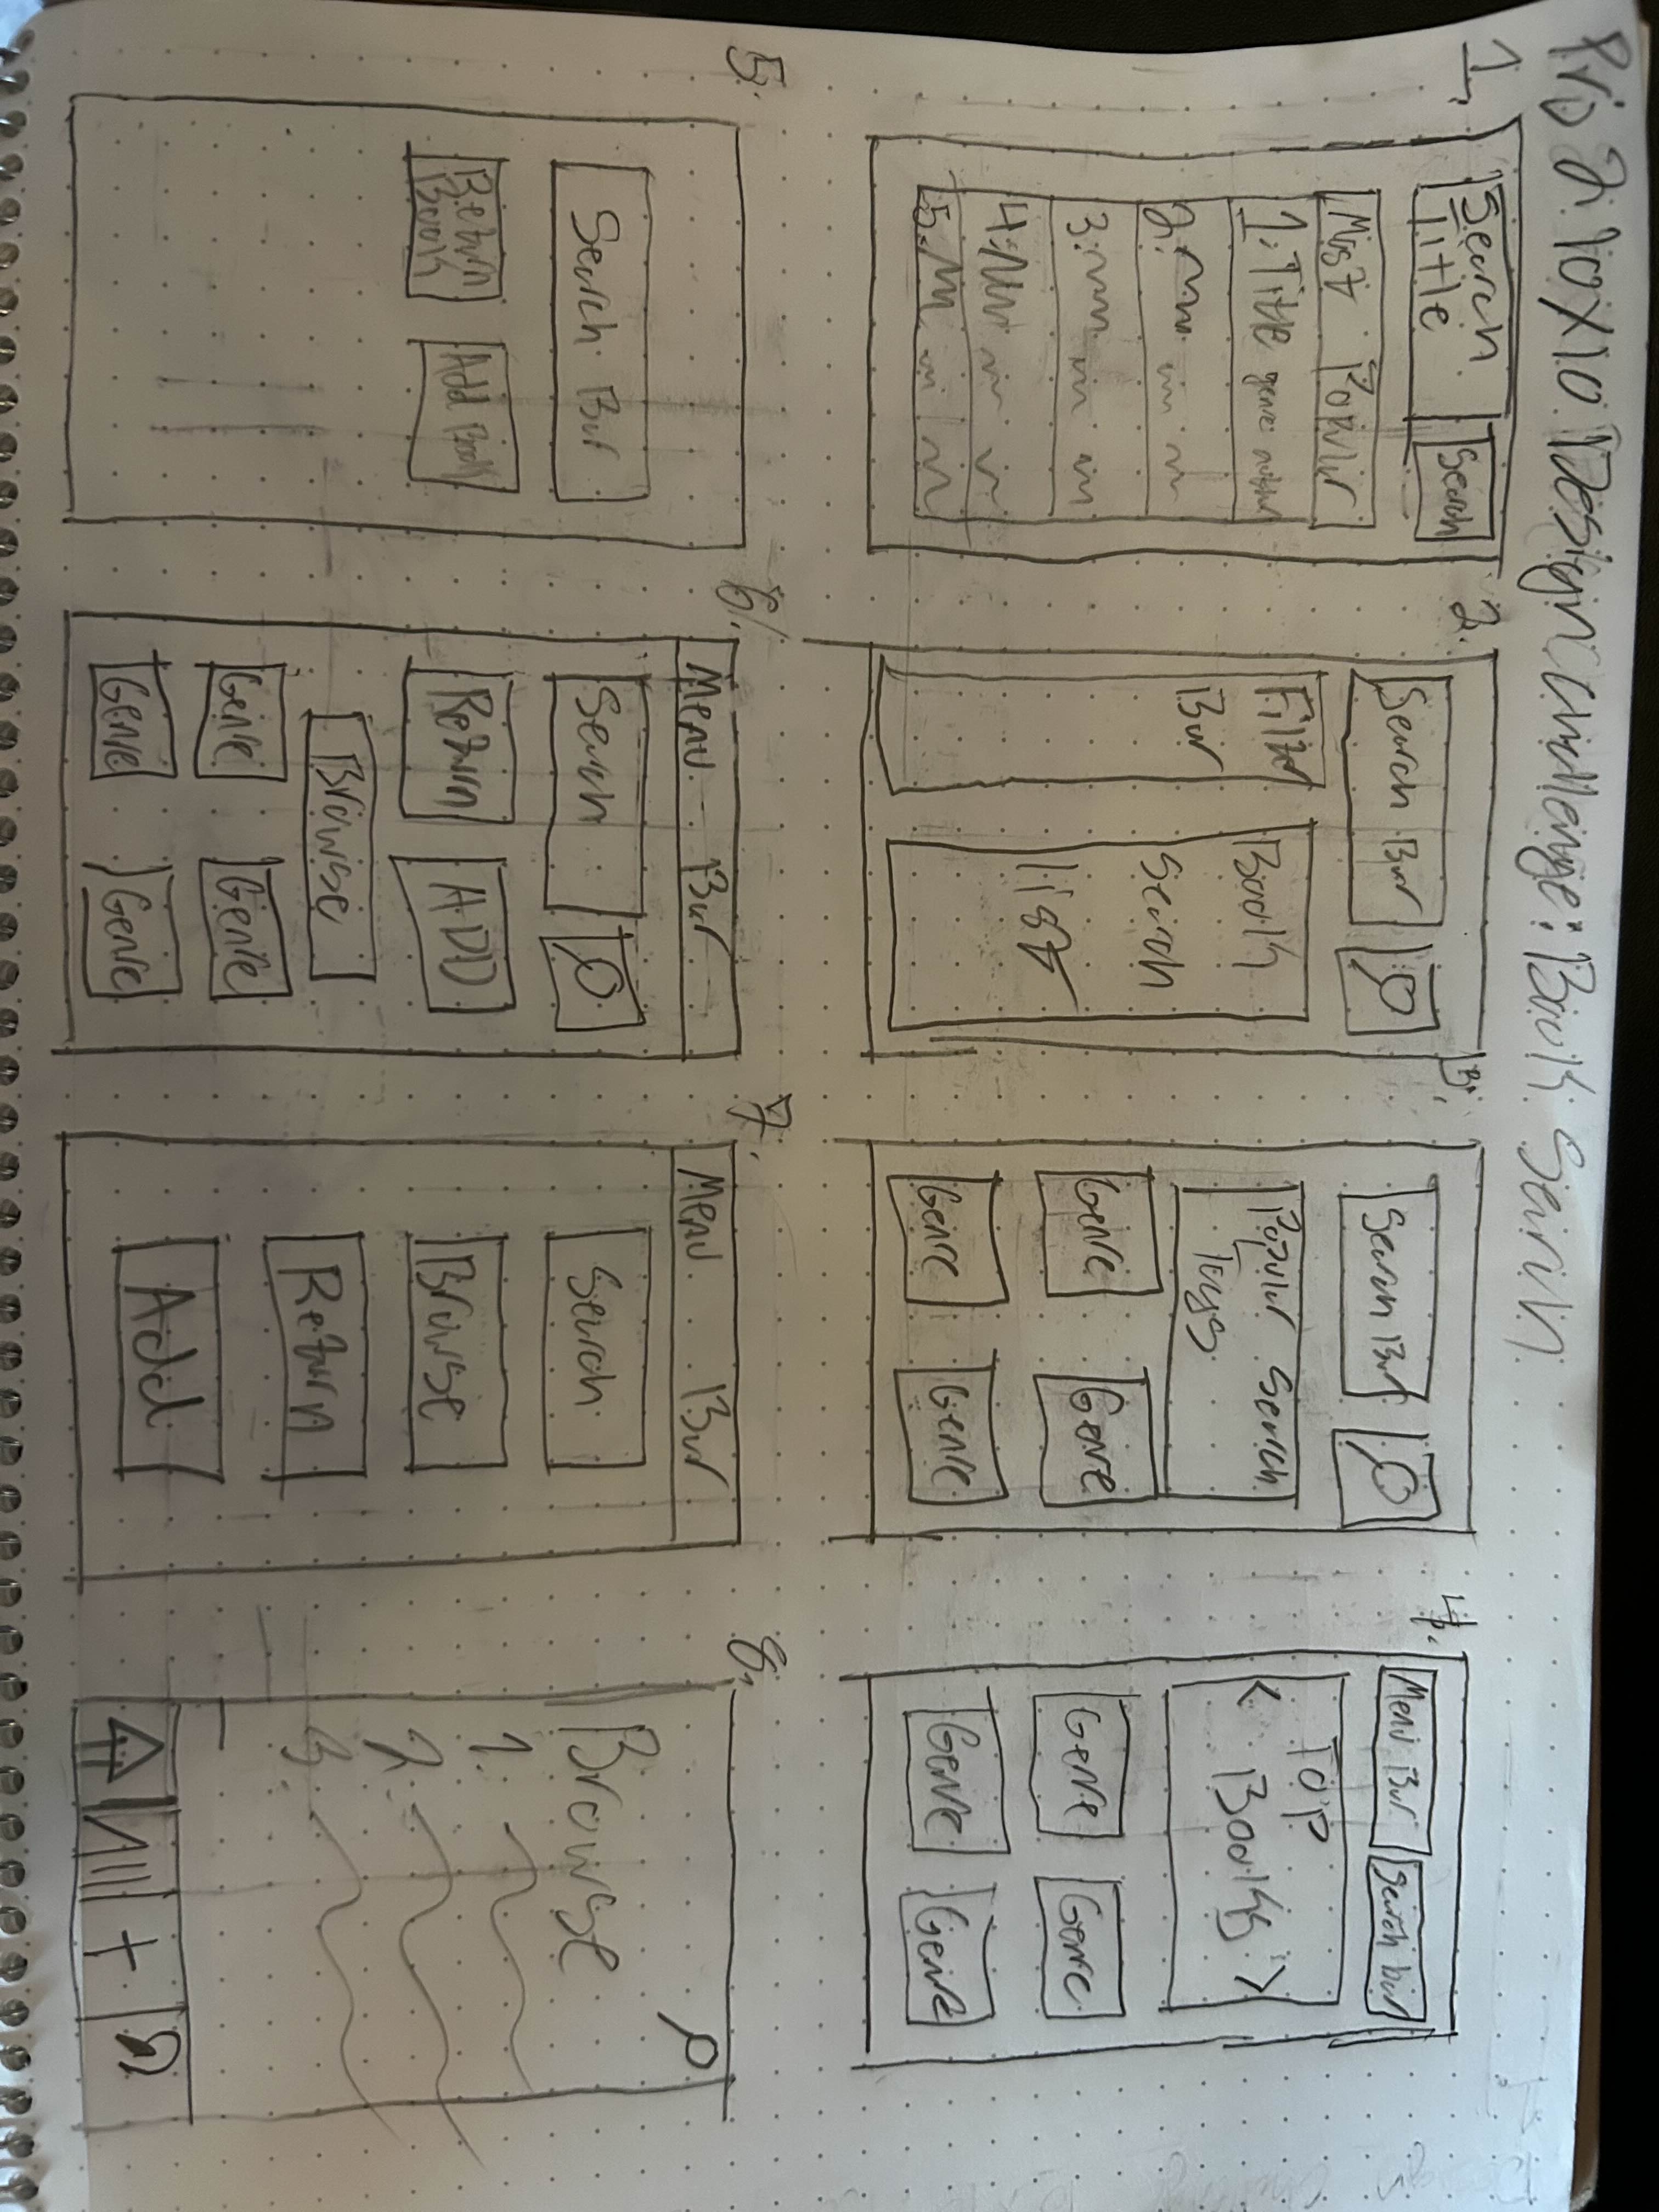 Pro 2 10x10 Design Challenge: Book Search
1.
Search
Title
Search
Most Populr
1. Title genre author
2.
3.
4.
5.
2.
Search Bar
Filter
Bar
Book
Search
list
3.
Search Bar
Populr Search
Tags
Genre
Genre
Genre
Genre
4.
Menu Bar
Search bar
< Top
Books >
Genre
Genre
Genre
Genre
5.
Search Bar
Return
Book
Add Book
6.
Menu Bar
Search
Return
ADD
Browse
Genre
Genre
Genre
Genre
7.
Menu Bar
Search
Browse
Return
Add
8.
Browse
1.
2.
3.
+